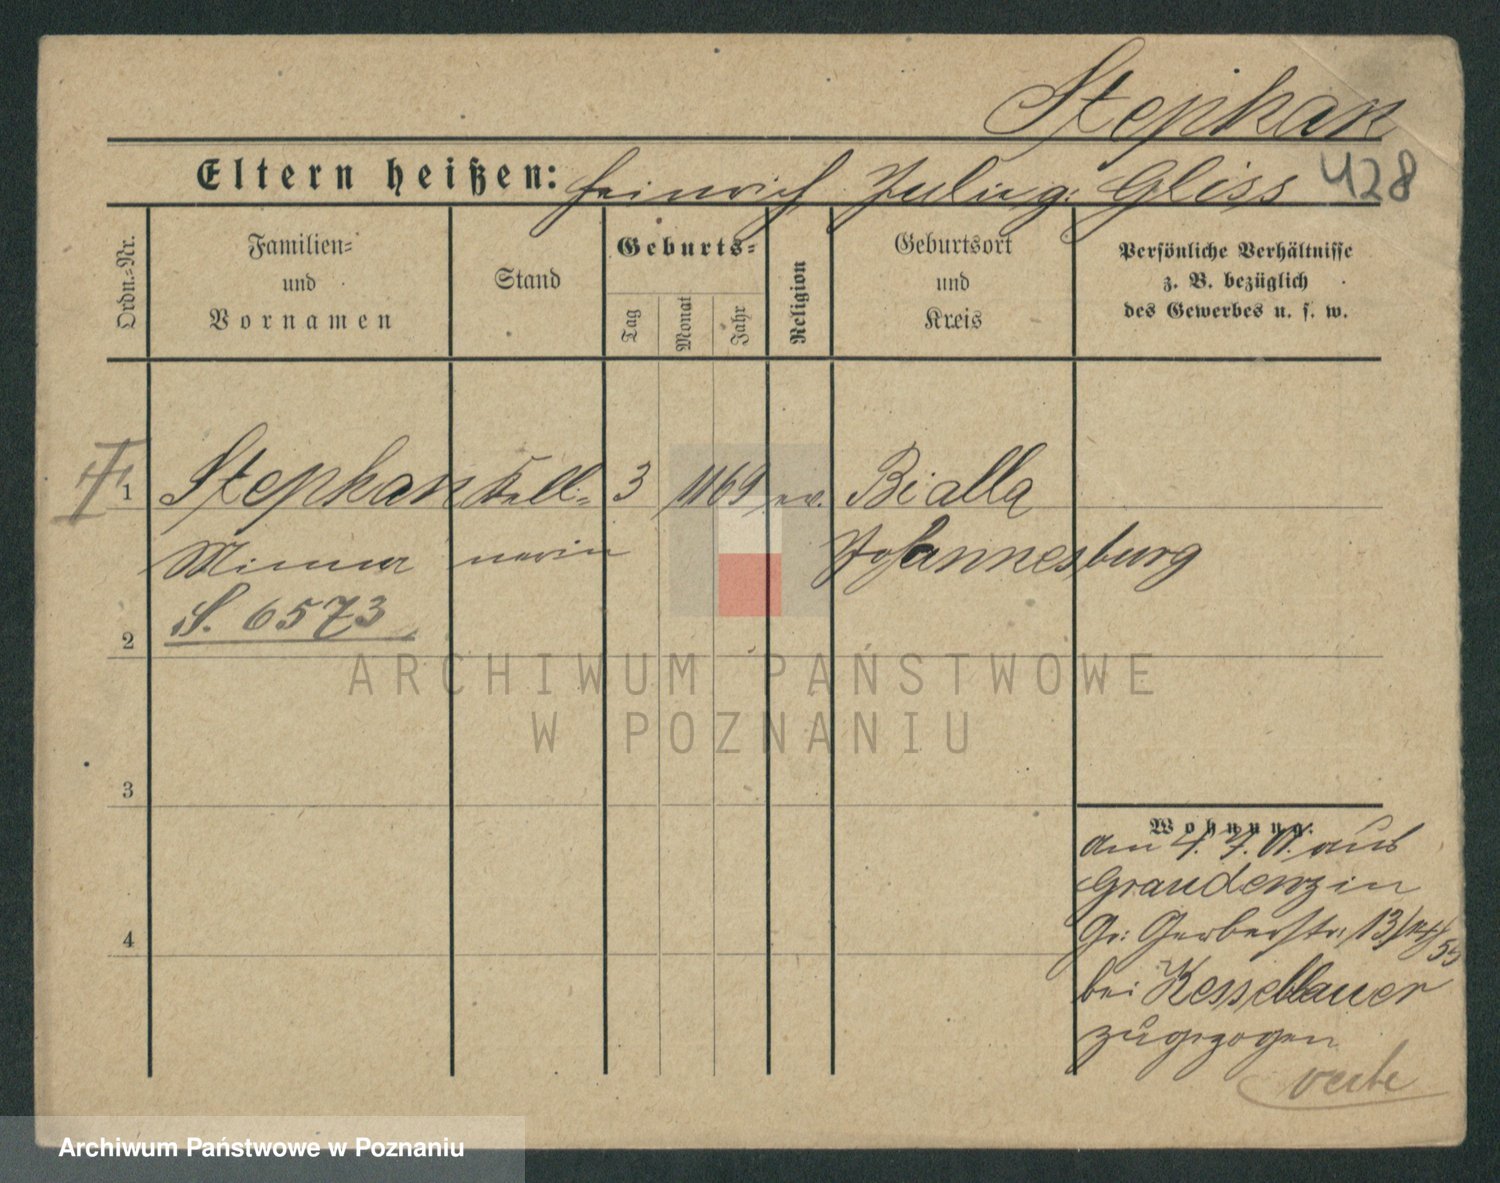 Stephan
Eltern heißen: Heinrich Julius: Gliss 428
Ordn.-Nr.
Familien-
und
Vornamen
Stand
Geburts-
Tag
Monat
Jahr
Religion
Geburtsort
und
Kreis
Persönliche Verhältnisse
z. B. bezüglich
des Gewerbes u. s. w.
1 Stephan Kell- 3 11 69 ev. Bialla
Minna nerin Johannesburg
S. 6573
2
ARCHIWUM PAŃSTWOWE
W POZNANIU
3
Wohnung:
am 4. 7. 01. aus
Graudenz in
4
Gr: Gerberstr. 13/
55
bei Kesselbauer
zugezogen
Archiwum Państwowe w Poznaniu